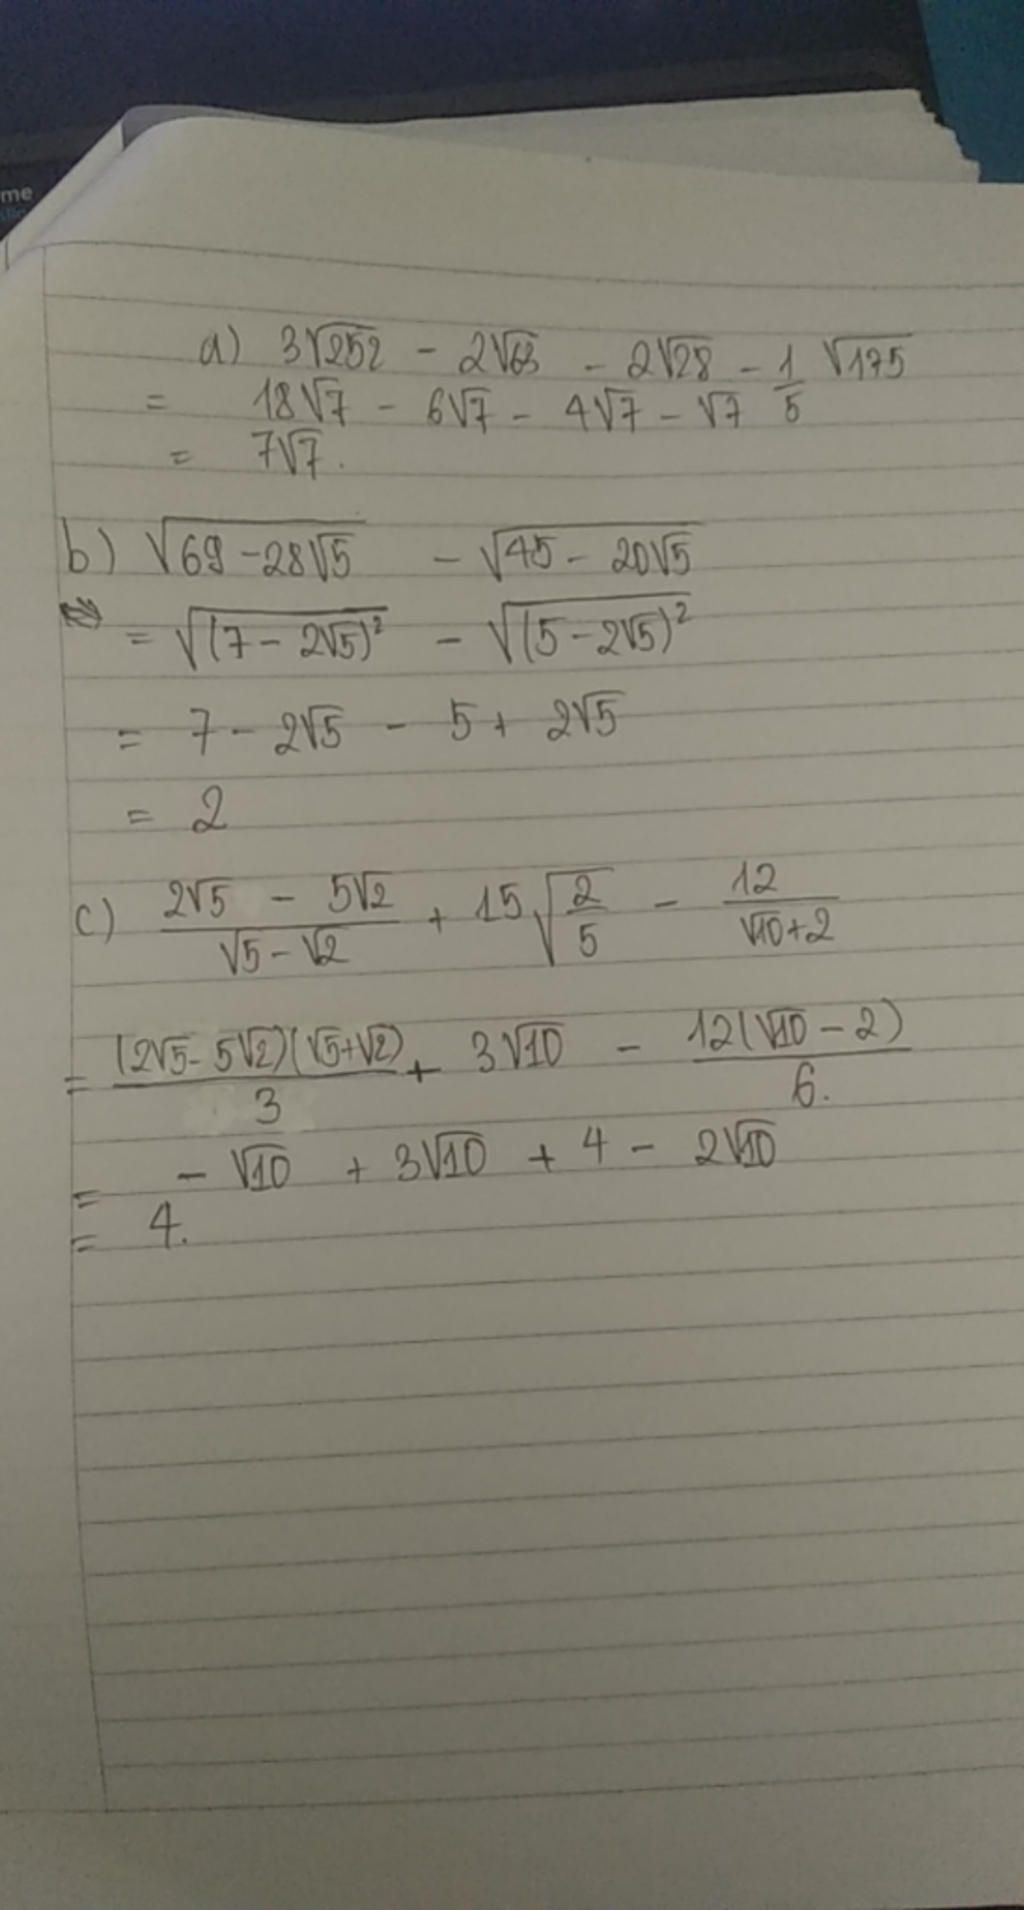 me
a) 3√252 - 2√63 - 2√28 - 1/5 √175
= 18√7 - 6√7 - 4√7 - √7
= 7√7.
b) √(69 - 28√5) - √(45 - 20√5)
= √((7 - 2√5)²) - √((5 - 2√5)²)
= 7 - 2√5 - 5 + 2√5
= 2
c) (2√5 - 5√2)/(√5 - √2) + 15√(2/5) - 12/(√10 + 2)
= (2√5 - 5√2)(√5 + √2)/3 + 3√10 - 12(√10 - 2)/6.
= - √10 + 3√10 + 4 - 2√10
= 4.